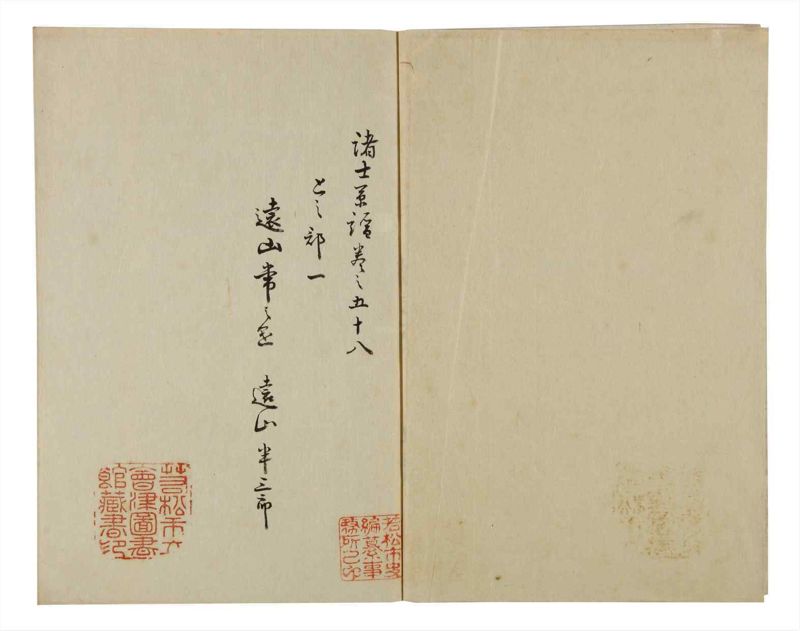 諸士系譜巻之五十八
と之部一
遠山常之進 遠山半三郎
若松市史
編纂事
務所之印
若松市立
會津圖書
館藏書印